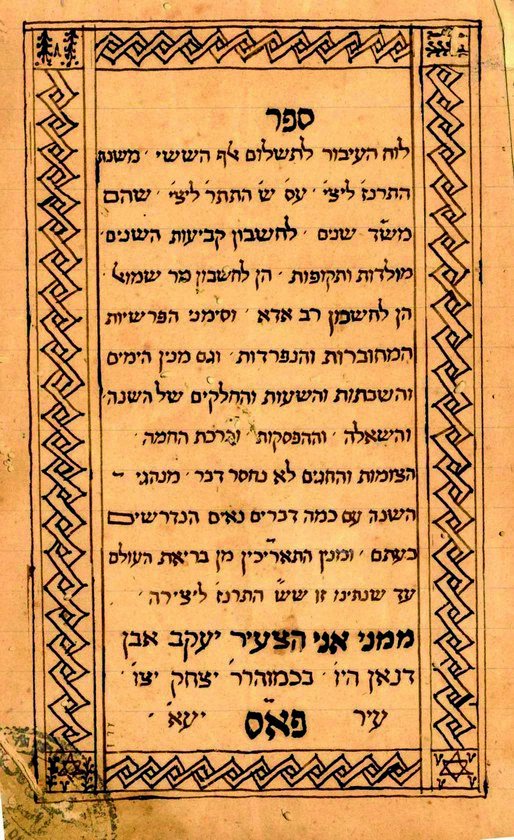 ספר
לוח העיבור לתשלום אלף הששי ׳ משנת
התרנז ליצי׳ ׳ עס׳ ש׳ התתר׳ ליצי׳ ׳ שהם
משׁד שנים ׳ לחשבון קביעות השנים ׳
מולדות ותקופות ׳ הן לחשבון מר שמואל
הן לחשבון רב אדא ׳ וסימני הפרשיות
המחוברות והנפרדות ׳ וגם מנין הימים
והשבתות והשעות והחלקים של השנה
והשאלה ׳ וההפסקות ׳ וברכת החמה ׳
הצומות והחגים לא נחסר דבר ׳ מנהגי ־
השנה עם כמה דברים נאים הנדרשים
בעתם ׳ ומנין התאריכין מן בריאת העולם
עד שנתינו זו שש׳ התרנז ליצירה ׳
ממני אני הצעיר יעקב אבן
דנאן היו׳ ׳ בכמוהרר׳ יצחק יצו׳ ׳
עיר פאס יעא׳ ׳